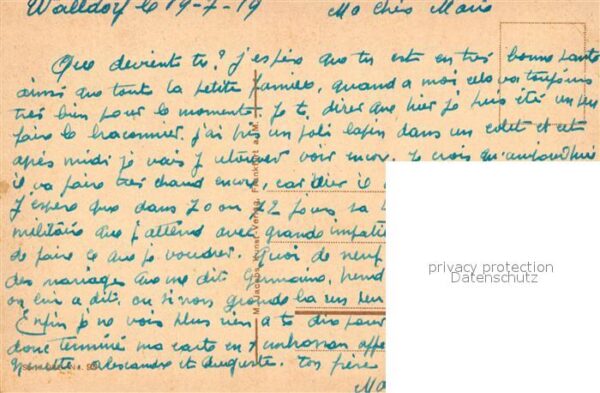 Walldorf le 19-7-19 Ma Chér Mario
Que devient tu? J'espère que tu est en très bonne santé
ainsi que tout la petite famille, quand a moi cela va toujours
très bien pour le moment. Je te direr que hier je suis été un peu
faire le braconnier, j'ai pris un joli lapin dans un colet et cet
après midi je vais y retourner voir encor. Je crois qu'aujourd'hui
il va faire très chaud encore, car hier il
J'espère que dans 20 ou 22 jours sa
militaire que j'attend avec grande impatie
de faire ce que je voudrer. Quoi de neuf
des mariages que me dit Germaine,
on lui a dit, ou si nous
Enfin je ne vois plus rien a te dire pour
donc terminé ma carte en t'embrassan
Ginette, Alexandre et Auguste. ton frère
Ma
M. Jacobs, Kunst-Verlag, Frankfurt a. M.
privacy protection
Datenschutz